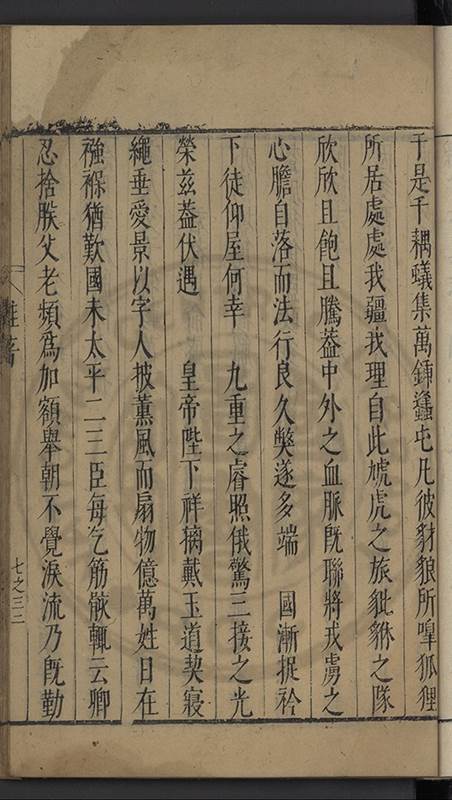 于是千耦蟻集萬鍤蠭屯凡彼豺狼所嘷狐狸
所居處處我疆我理自此虓虎之旅貔貅之隊
欣欣且飽且騰葢中外之血脈既聯將戎虜之
心膽自落而法行良久獘遂多端　國漸捉衿
下徒仰屋何幸　九重之睿照俄驚三接之光
榮茲葢伏遇　　皇帝陛下祥摛戴玉道契寢
繩垂愛景以字人披薰風而扇物億萬姓日在
襁褓猶歎國未太平二三臣每乞筋骸輒云卿
忍捨朕父老頻爲加額舉朝不覺淚流乃既勤
七之三三